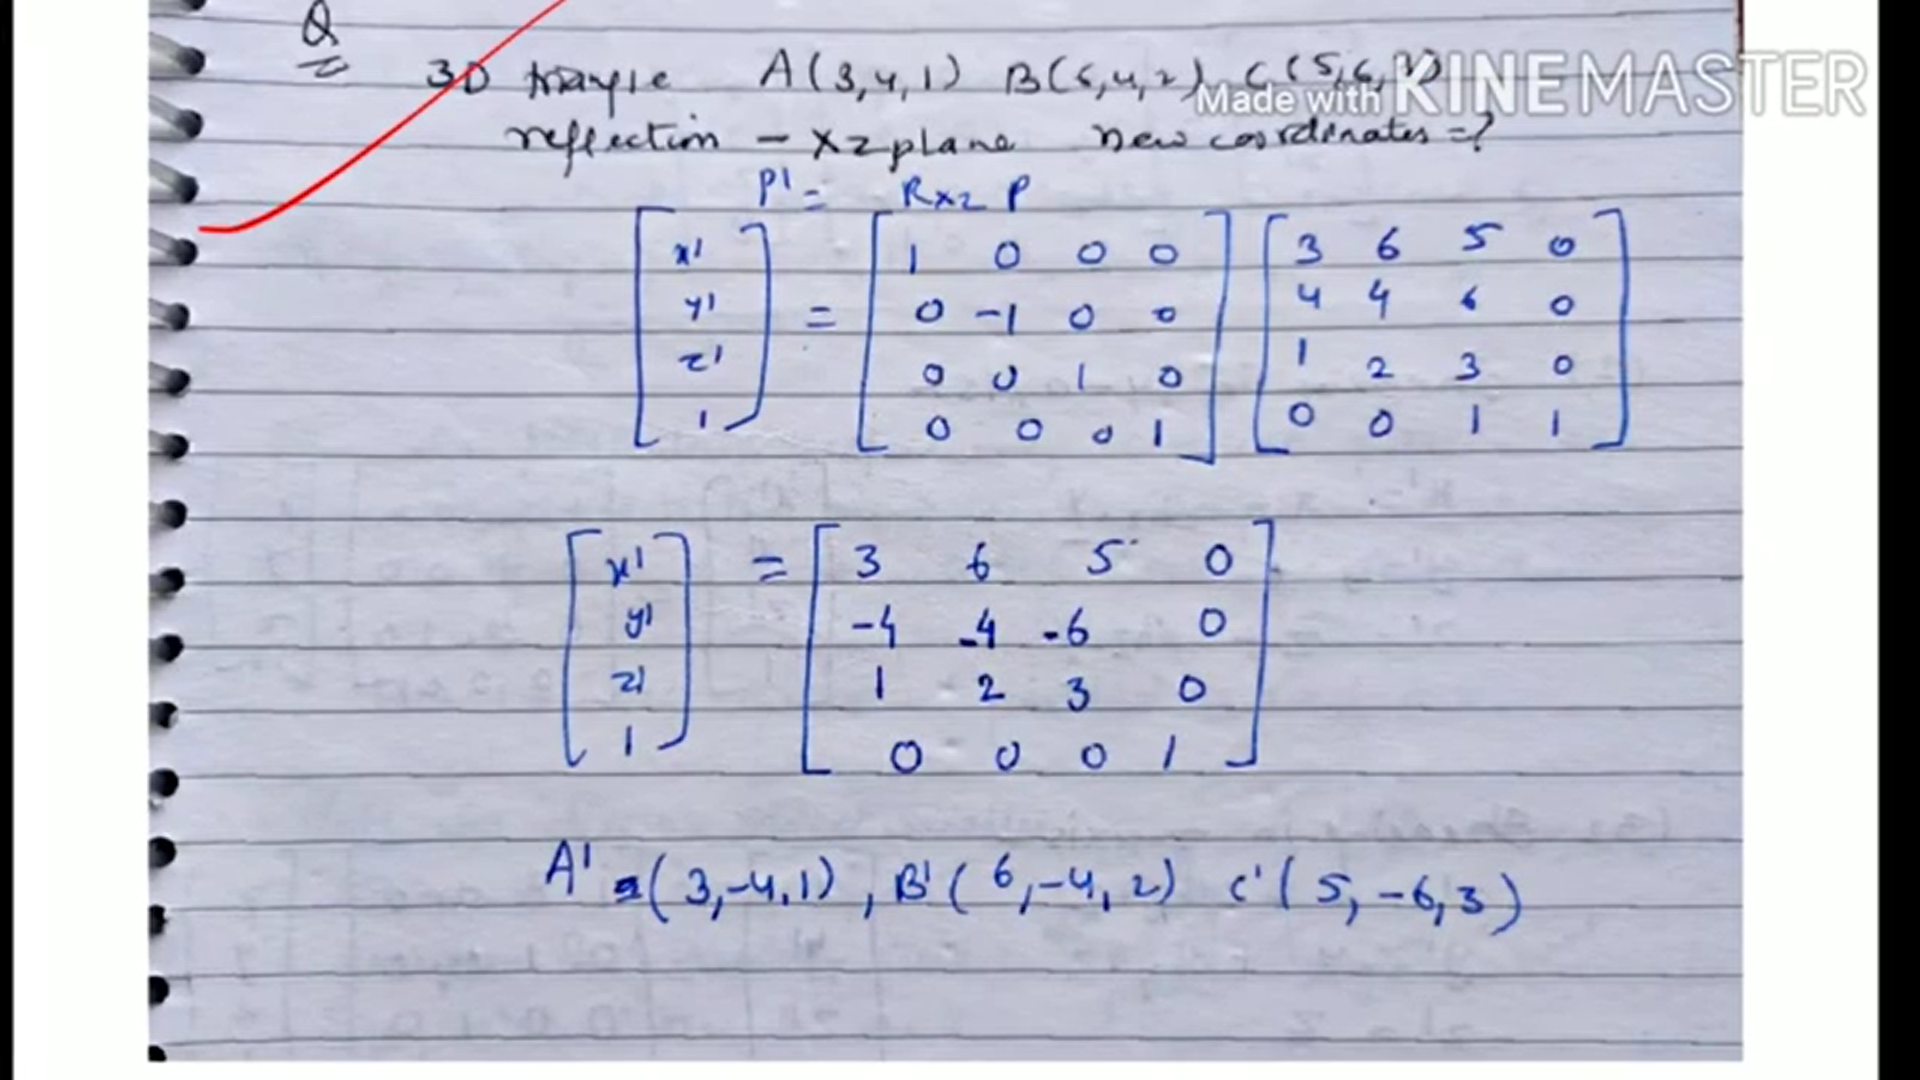 Q
3D triangle A(3,4,1) B(6,4,2) C(5,6,3)
Made with KINEMASTER
reflection - xz plane new coordinates = ?
P' = Rxz P
[x' y' z' 1] = [1 0 0 0 [3 6 5 0
0 -1 0 0 4 4 6 0
0 0 1 0 1 2 3 0
0 0 0 1] 0 0 1 1]
[x' y' z' 1] = [3 6 5 0
-4 -4 -6 0
1 2 3 0
0 0 0 1]
A' = (3,-4,1), B' (6,-4,2) C' (5,-6,3)